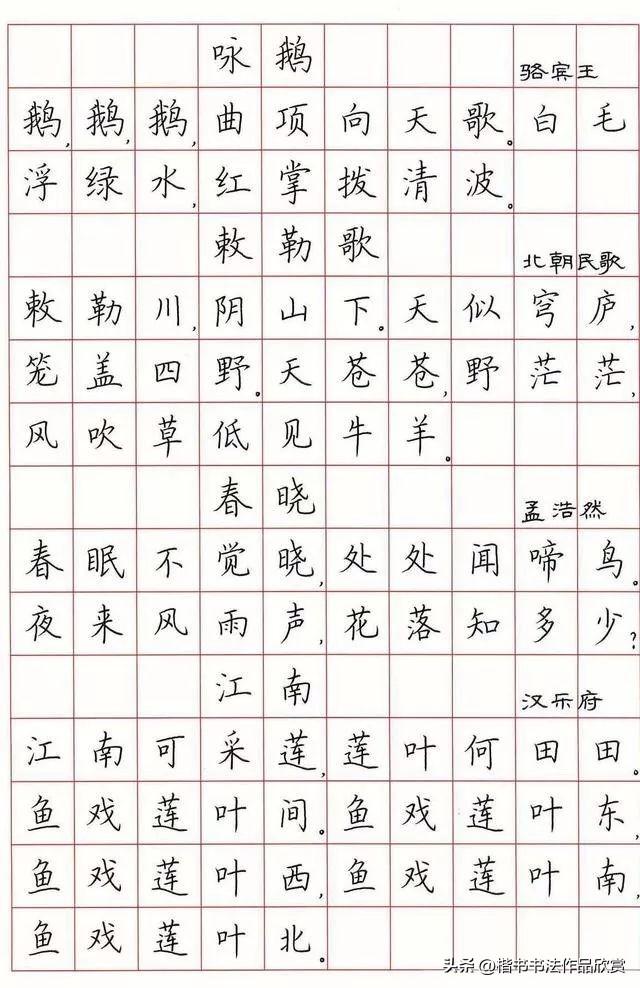 咏鹅
骆宾王
鹅,鹅,鹅,曲项向天歌。白毛
浮绿水,红掌拨清波。
敕勒歌
北朝民歌
敕勒川,阴山下。天似穹庐,
笼盖四野。天苍苍,野茫茫,
风吹草低见牛羊。
春晓
孟浩然
春眠不觉晓,处处闻啼鸟。
夜来风雨声,花落知多少?
江南
汉乐府
江南可采莲,莲叶何田田。
鱼戏莲叶间。鱼戏莲叶东,
鱼戏莲叶西,鱼戏莲叶南,
鱼戏莲叶北。
头条 @楷书书法作品欣赏